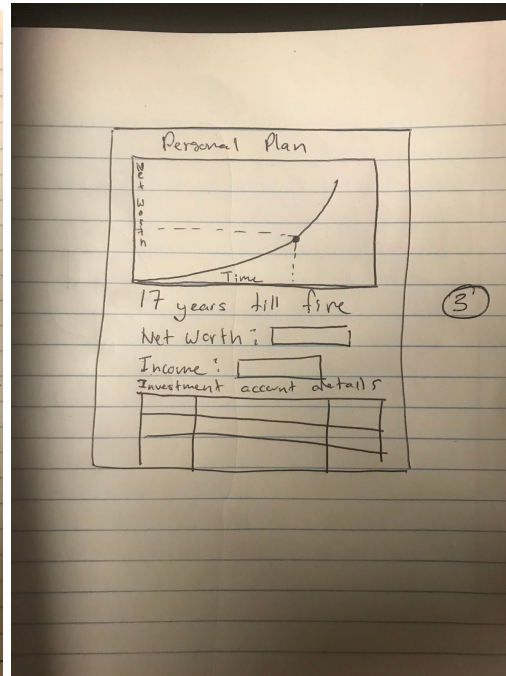 Personal Plan
Net Worth
Time
17 years till fire
Net Worth:
Income:
Investment account details
3